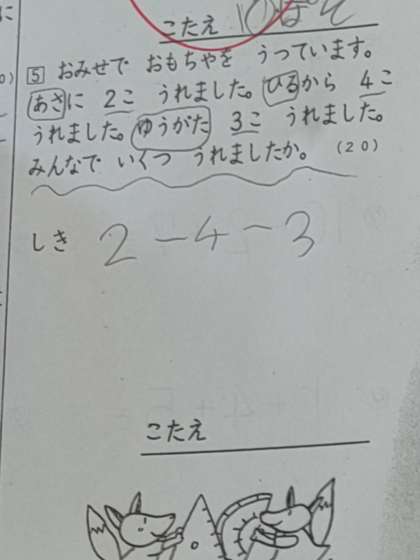 こたえ
5 おみせで おもちゃを うっています。
あさに 2こ うれました。ひるから 4こ
うれました。ゆうがた 3こ うれました。
みんなで いくつ うれましたか。 (20)
しき 2-4-3
こたえ